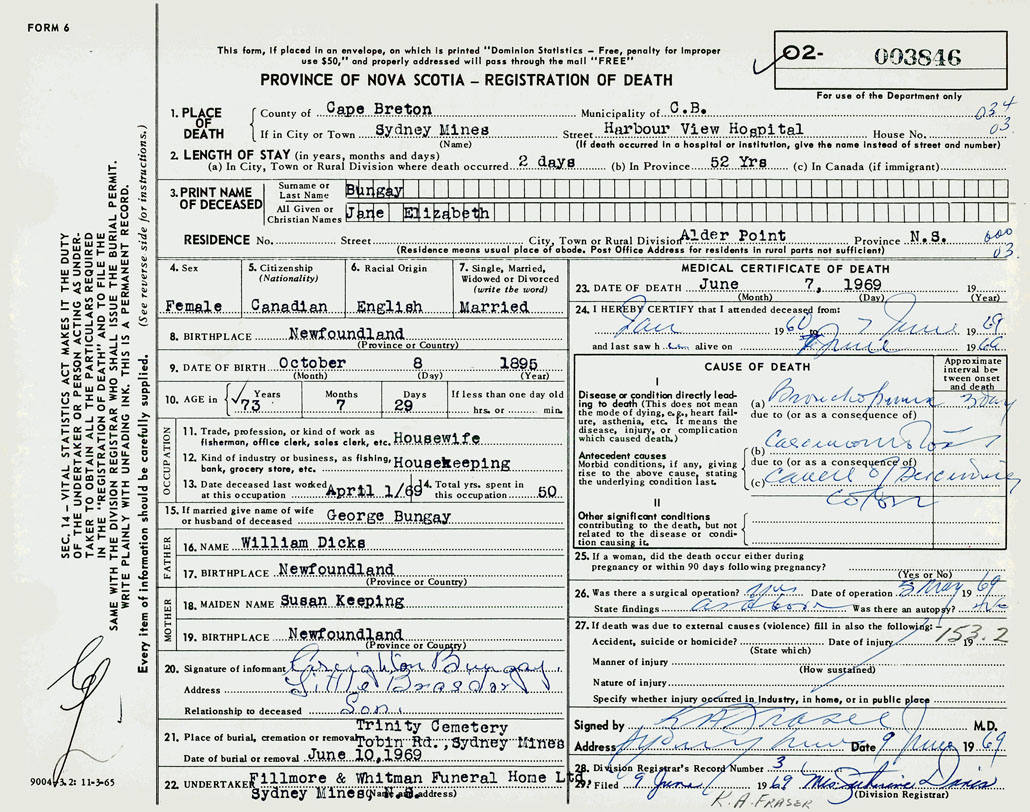 FORM 6
This form, if placed in an envelope, on which is printed "Dominion Statistics – Free, penalty for improper
use $50," and properly addressed will pass through the mail "FREE"
PROVINCE OF NOVA SCOTIA – REGISTRATION OF DEATH
02- 003846
For use of the Department only
1. PLACE OF DEATH County of Cape Breton Municipality of C.B. 034
If in City or Town Sydney Mines Street Harbour View Hospital House No. 03.
(Name) (If death occurred in a hospital or institution, give the name instead of street and number)
2. LENGTH OF STAY (in years, months and days)
(a) In City, Town or Rural Division where death occurred 2 days (b) In Province 52 Yrs (c) In Canada (if immigrant)
3. PRINT NAME OF DECEASED Surname or Last Name Bungay
All Given or Christian Names Jane Elizabeth
RESIDENCE No. Street City, Town or Rural Division Alder Point Province N.S. 000
(Residence means usual place of abode. Post Office Address for residents in rural parts not sufficient) 03.
4. Sex 5. Citizenship (Nationality) 6. Racial Origin 7. Single, Married, Widowed or Divorced (write the word)
Female Canadian English Married
8. BIRTHPLACE Newfoundland
(Province or Country)
9. DATE OF BIRTH October 8 1895
(Month) (Day) (Year)
10. AGE in Years Months Days If less than one day old
73 7 29 hrs. or min.
OCCUPATION
11. Trade, profession, or kind of work as
fisherman, office clerk, sales clerk, etc. Housewife
12. Kind of industry or business, as fishing,
bank, grocery store, etc. Housekeeping
13. Date deceased last worked at this occupation April 1/69 14. Total yrs. spent in this occupation 50
15. If married give name of wife
or husband of deceased George Bungay
FATHER
16. NAME William Dicks
17. BIRTHPLACE Newfoundland
(Province or Country)
MOTHER
18. MAIDEN NAME Susan Keeping
19. BIRTHPLACE Newfoundland
(Province or Country)
20. Signature of informant Creighton Bungay
Address Little Bras d'or
Relationship to deceased Son.
21. Place of burial, cremation or removal Trinity Cemetery
Tobin Rd., Sydney Mines
Date of burial or removal June 10,1969
22. UNDERTAKER Fillmore & Whitman Funeral Home Ltd.,
Sydney Mines, N.S.
(Name and address)
MEDICAL CERTIFICATE OF DEATH
23. DATE OF DEATH June 7, 1969 19
(Month) (Day) (Year)
24. I HEREBY CERTIFY that I attended deceased from:
Jan 1960 to 7 June 1969
and last saw h er alive on June 1969
CAUSE OF DEATH
Approximate interval between onset and death
I
Disease or condition directly leading to death (This does not mean
the mode of dying, e.g., heart failure, asthenia, etc. It means the
disease, injury, or complication
which caused death.)
(a) Bronchopneumonia 3 day
due to (or as a consequence of)
Antecedent causes
Morbid conditions, if any, giving
rise to the above cause, stating
the underlying condition last.
(b) Carcinomatosis
due to (or as a consequence of)
(c) Cancer of Descending
Colon
II
Other significant conditions
contributing to the death, but not
related to the disease or condition causing it.
25. If a woman, did the death occur either during
pregnancy or within 90 days following pregnancy?
(Yes or No)
26. Was there a surgical operation? yes Date of operation 5 May 1969
State findings as above Was there an autopsy? No
27. If death was due to external causes (violence) fill in also the following: 153.2
Accident, suicide or homicide? Date of injury 19
(State which)
Manner of injury
(How sustained)
Nature of injury
Specify whether injury occurred in Industry, in home, or in public place
Signed by K A Fraser M.D.
Address Sydney Mines Date 9 June 1969
28. Division Registrar's Record Number 3
29. Filed 9 June 1969 Mrs. Catherine Davis
(Division Registrar)
K. A. FRASER
SEC. 14 – VITAL STATISTICS ACT MAKES IT THE DUTY
OF THE UNDERTAKER OR PERSON ACTING AS UNDER-
TAKER TO OBTAIN ALL THE PARTICULARS REQUIRED
IN THE "REGISTRATION OF DEATH" AND TO FILE THE
SAME WITH THE DIVISION REGISTRAR WHO SHALL ISSUE THE BURIAL PERMIT.
WRITE PLAINLY WITH UNFADING INK. THIS IS A PERMANENT RECORD.
Every item of information should be carefully supplied. (See reverse side for instructions.)
90043.2: 11-3-65